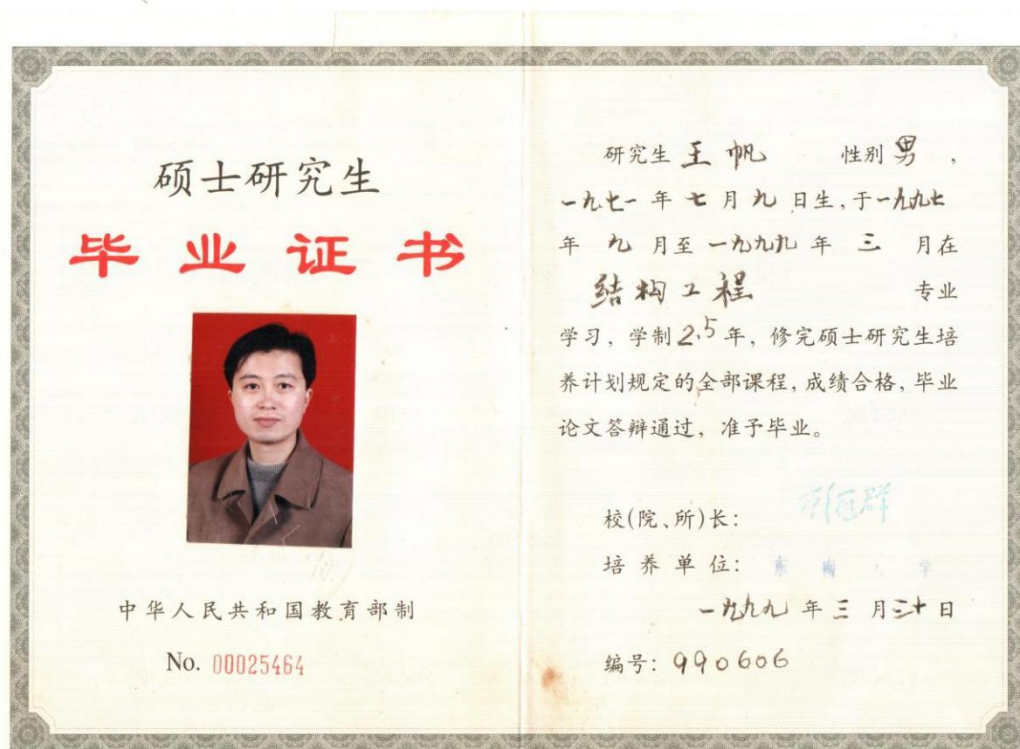 硕士研究生
毕业证书
中华人民共和国教育部制
No. 00025464
研究生 王帆 性别 男，
一九七一年七月九日生，于一九九七
年九月至一九九九年三月在
结构工程 专业
学习，学制2.5年，修完硕士研究生培
养计划规定的全部课程，成绩合格，毕业
论文答辩通过，准予毕业。
校(院、所)长：
培养单位：东南大学
一九九九年三月三十日
编号：990606